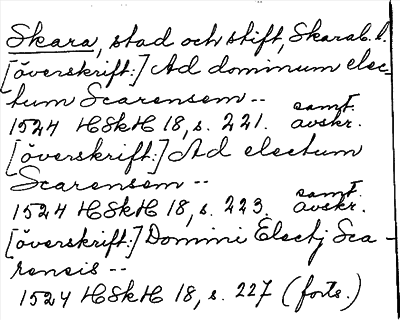 Skara, stad och stift, Skarab. l.
[överskrift:] Ad dominum elec-
tum Scarensem --
1524 HSkH 18, s. 221. samt. avskr.
[överskrift:] Ad electum
Scarensem --
1524 HSkH 18, s. 223. samt. avskr.
[överskrift:] Domini Electj Sca-
rensis --
1524 HSkH 18, s. 227 (forts.)